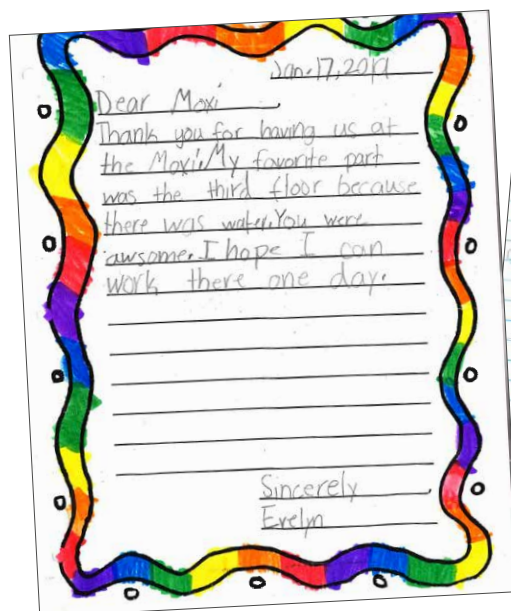 Jan. 17, 2019
Dear Moxi,
Thank you for having us at
the Moxi. My favorite part
was the third floor because
there was water. You were
awsome. I hope I can
work there one day.
Sincerely,
Evelyn